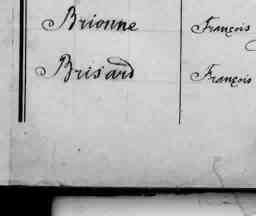 Brionne François
Brisard François